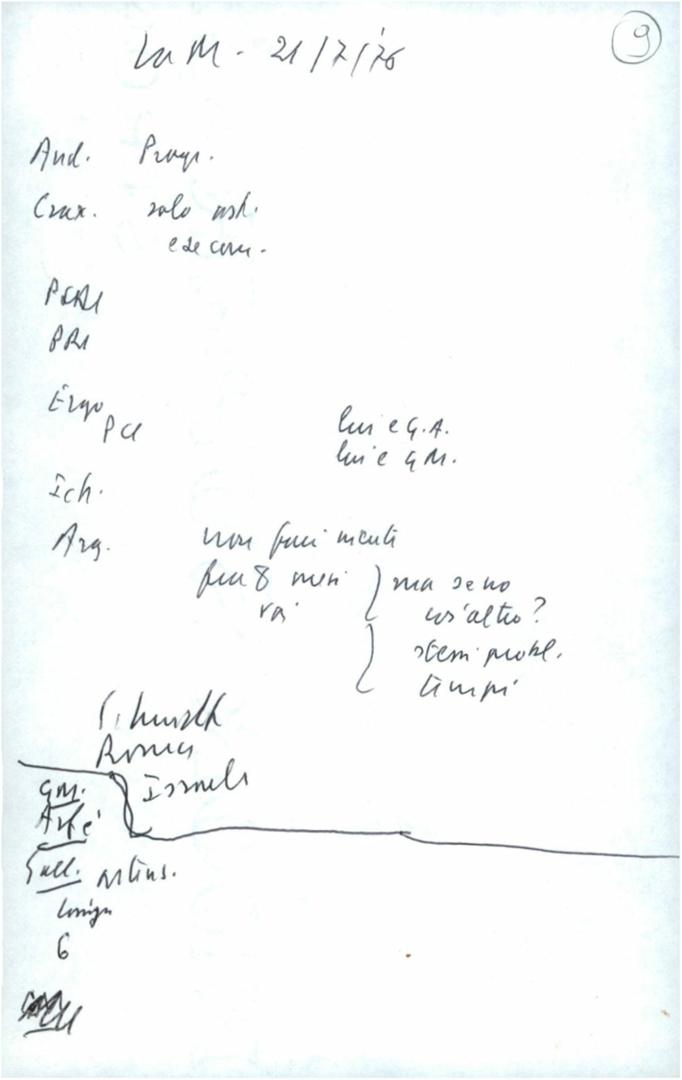 La M. - 21/7/'76
9
And. Progr.
Crax. solo ast.
e se com.
PSDI
PRI
Ergo
PCI
lui e G.A.
lui e G.M.
Ich.
Arg. non fuci menti
fra 8 mesi ma se no
vai cos'altro?
stessi probl.
tempi
Schmidt
Roma
Israele
G.M.
Arfé
Gall. astens.
6